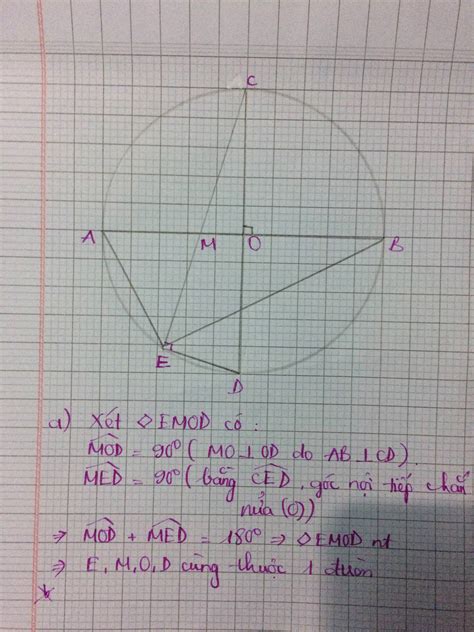 C
A M O B
E
D
a) Xét ◇EMOD có :
MOD = 90° ( MO ⊥ OD do AB ⊥ CD)
MED = 90° ( bằng CED, góc nội tiếp chắn
nửa (O))
⇒ MOD + MED = 180° ⇒ ◇EMOD nt
⇒ E, M, O, D cùng thuộc 1 đườn